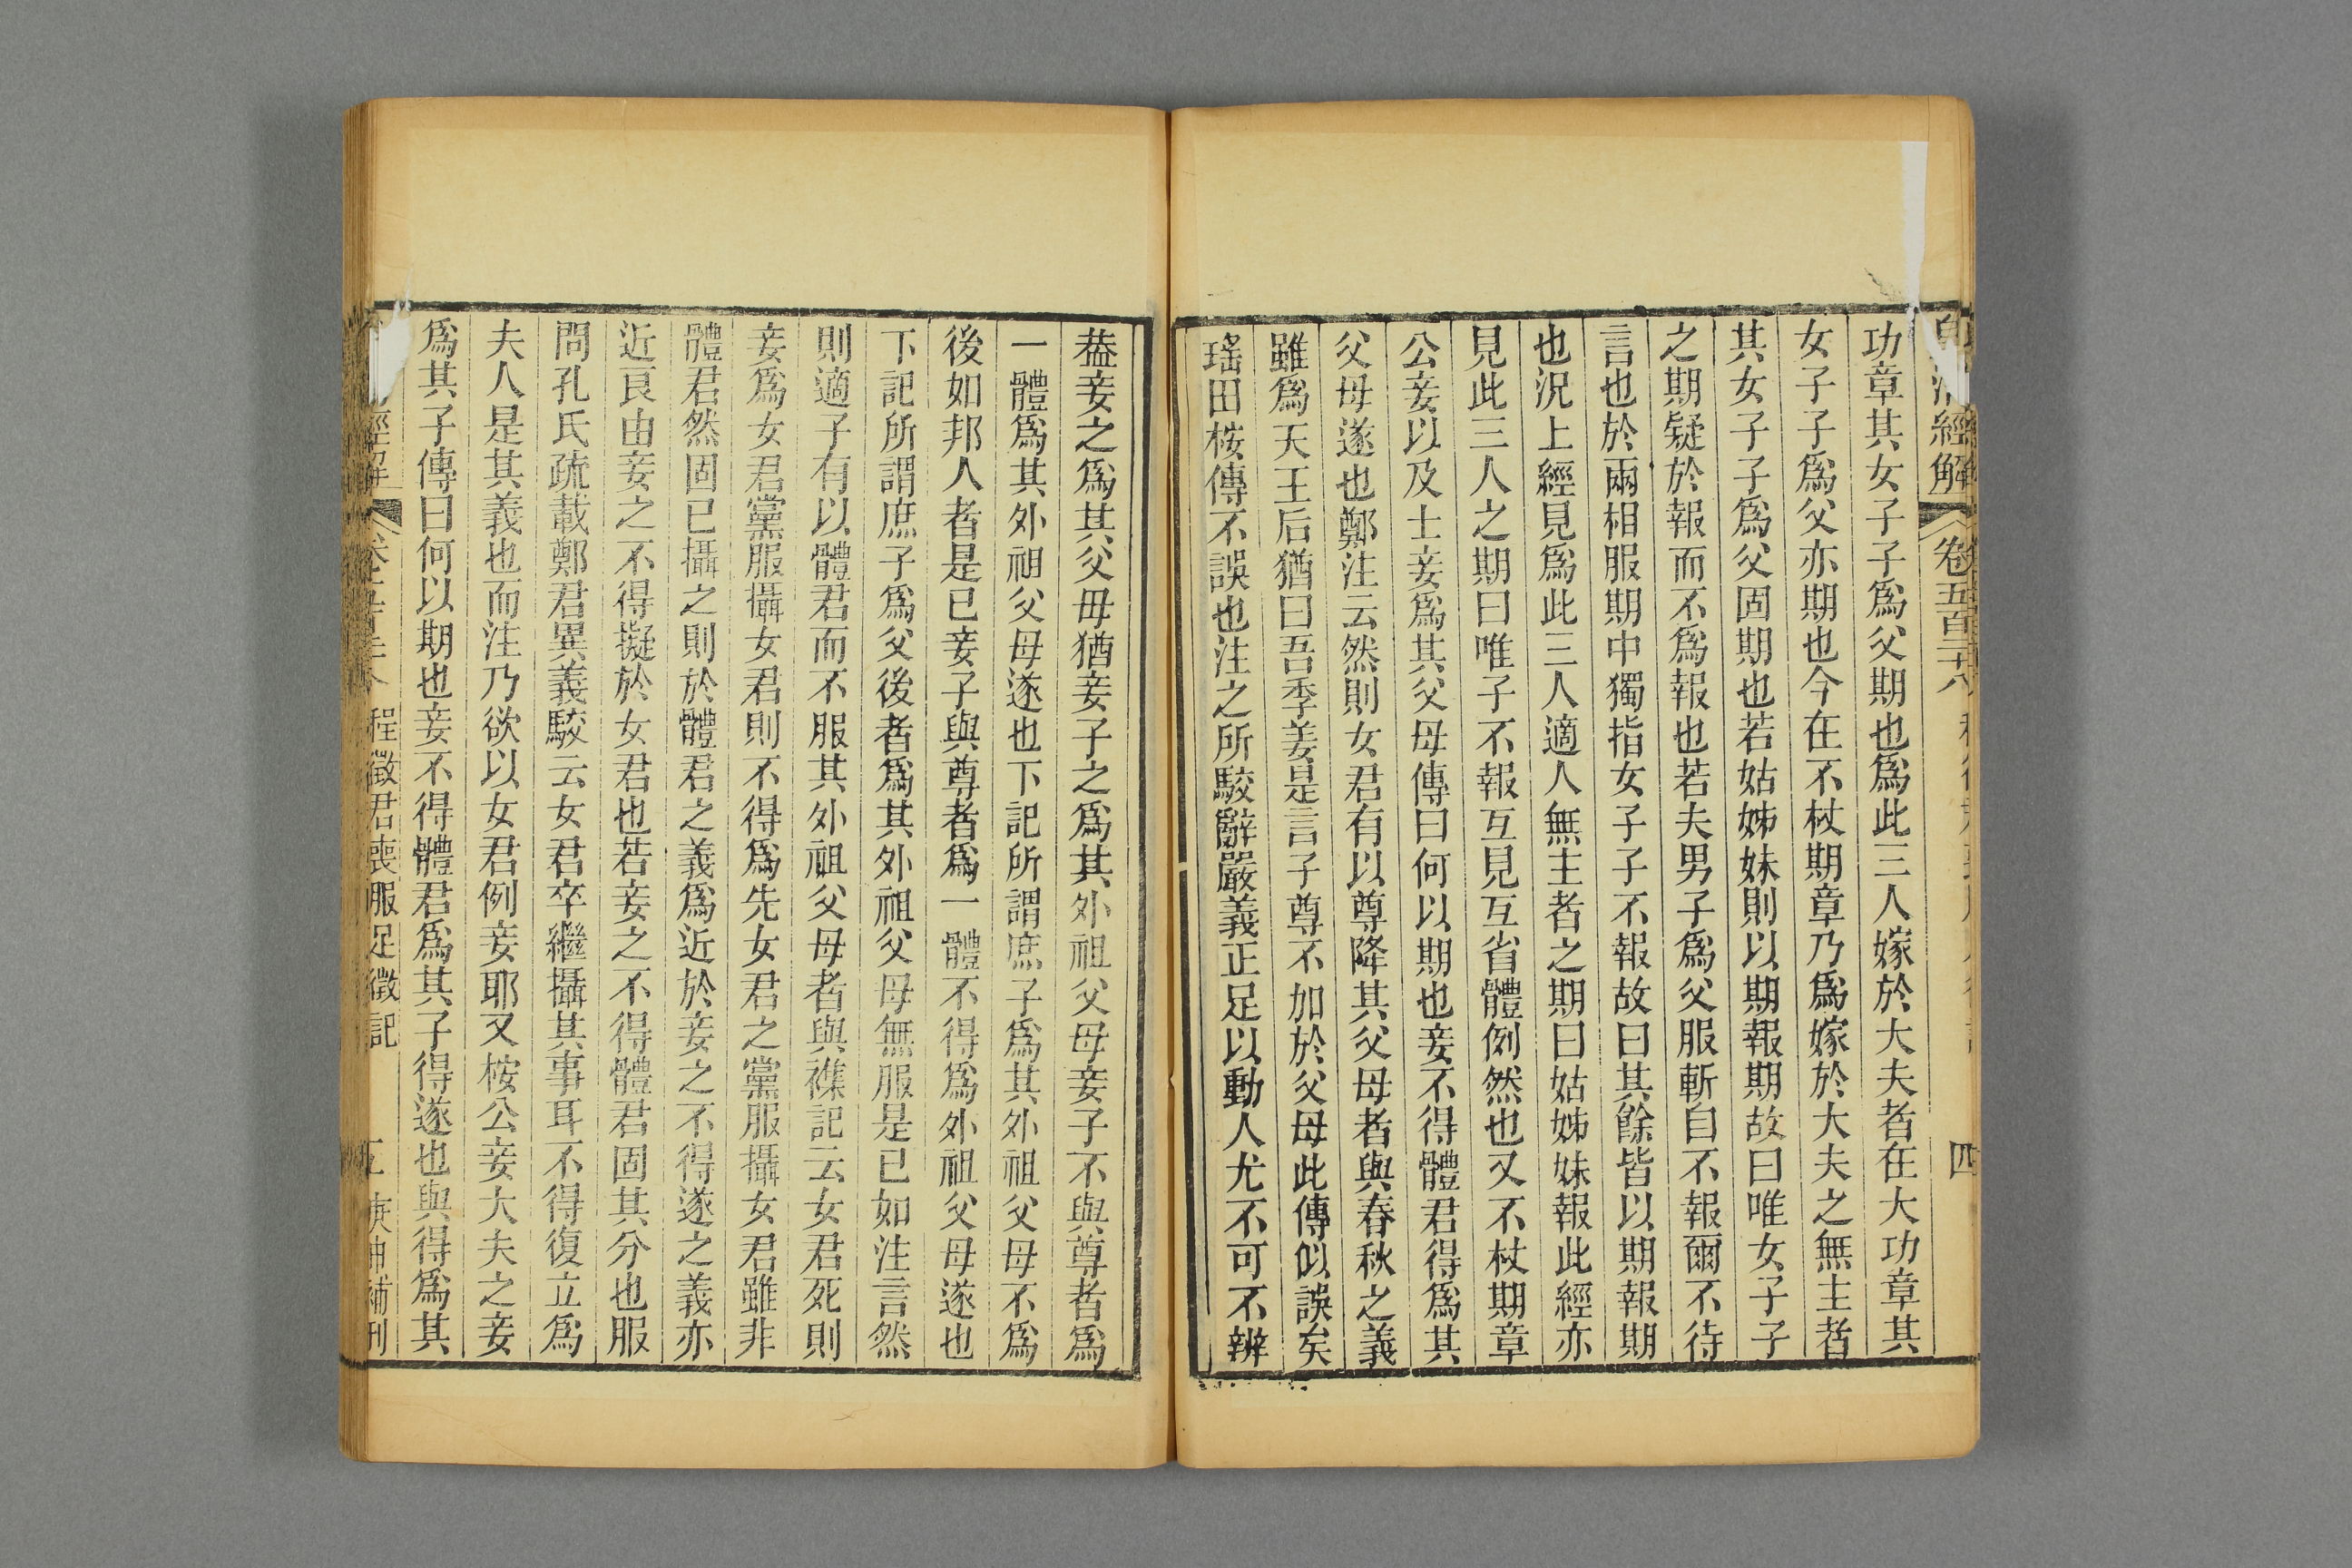 經解 卷五百二十八 四
功章其女子子爲父期也爲此三人嫁於大夫者在大功章其
女子子爲父亦期也今在不杖期章乃爲嫁於大夫之無主者
其女子子爲父固期也若姑姊妹則以期報期故曰唯女子子
之期疑於報而不爲報也若夫男子爲父服斬自不報爾不待
言也於兩相服期中獨指女子子不報故曰其餘皆以期報期
也況上經見爲此三人適人無主者之期曰姑姊妹報此經亦
見此三人之期曰唯子不報互見互省體例然也又不杖期章
公妾以及士妾爲其父母傳曰何以期也妾不得體君得爲其
父母遂也鄭注云然則女君有以尊降其父母者與春秋之義
雖爲天王后猶曰吾季姜是言子尊不加於父母此傳似誤矣
瑤田桉傳不誤也注之所駮辭嚴義正足以動人尤不可不辨
葢妾之爲其父母猶妾子之爲其外祖父母妾子不與尊者爲
一體爲其外祖父母遂也下記所謂庶子爲其外祖父母不爲
後如邦人者是已妾子與尊者爲一體不得爲外祖父母遂也
下記所謂庶子爲父後者爲其外祖父母無服是已如注言然
則適子有以體君而不服其外祖父母者與襍記云女君死則
妾爲女君黨服攝女君則不得爲先女君之黨服攝女君雖非
體君然固已攝之則於體君之義爲近於妾之不得遂之義亦
近良由妾之不得擬於女君也若妾之不得體君固其分也服
問孔氏疏載鄭君異義駮云女君卒繼攝其事耳不得復立爲
夫人是其義也而注乃欲以女君例妾耶又桉公妾大夫之妾
爲其子傳曰何以期也妾不得體君爲其子得遂也與得爲其
經解 程徵君喪服足徵記 五 庚申補刊